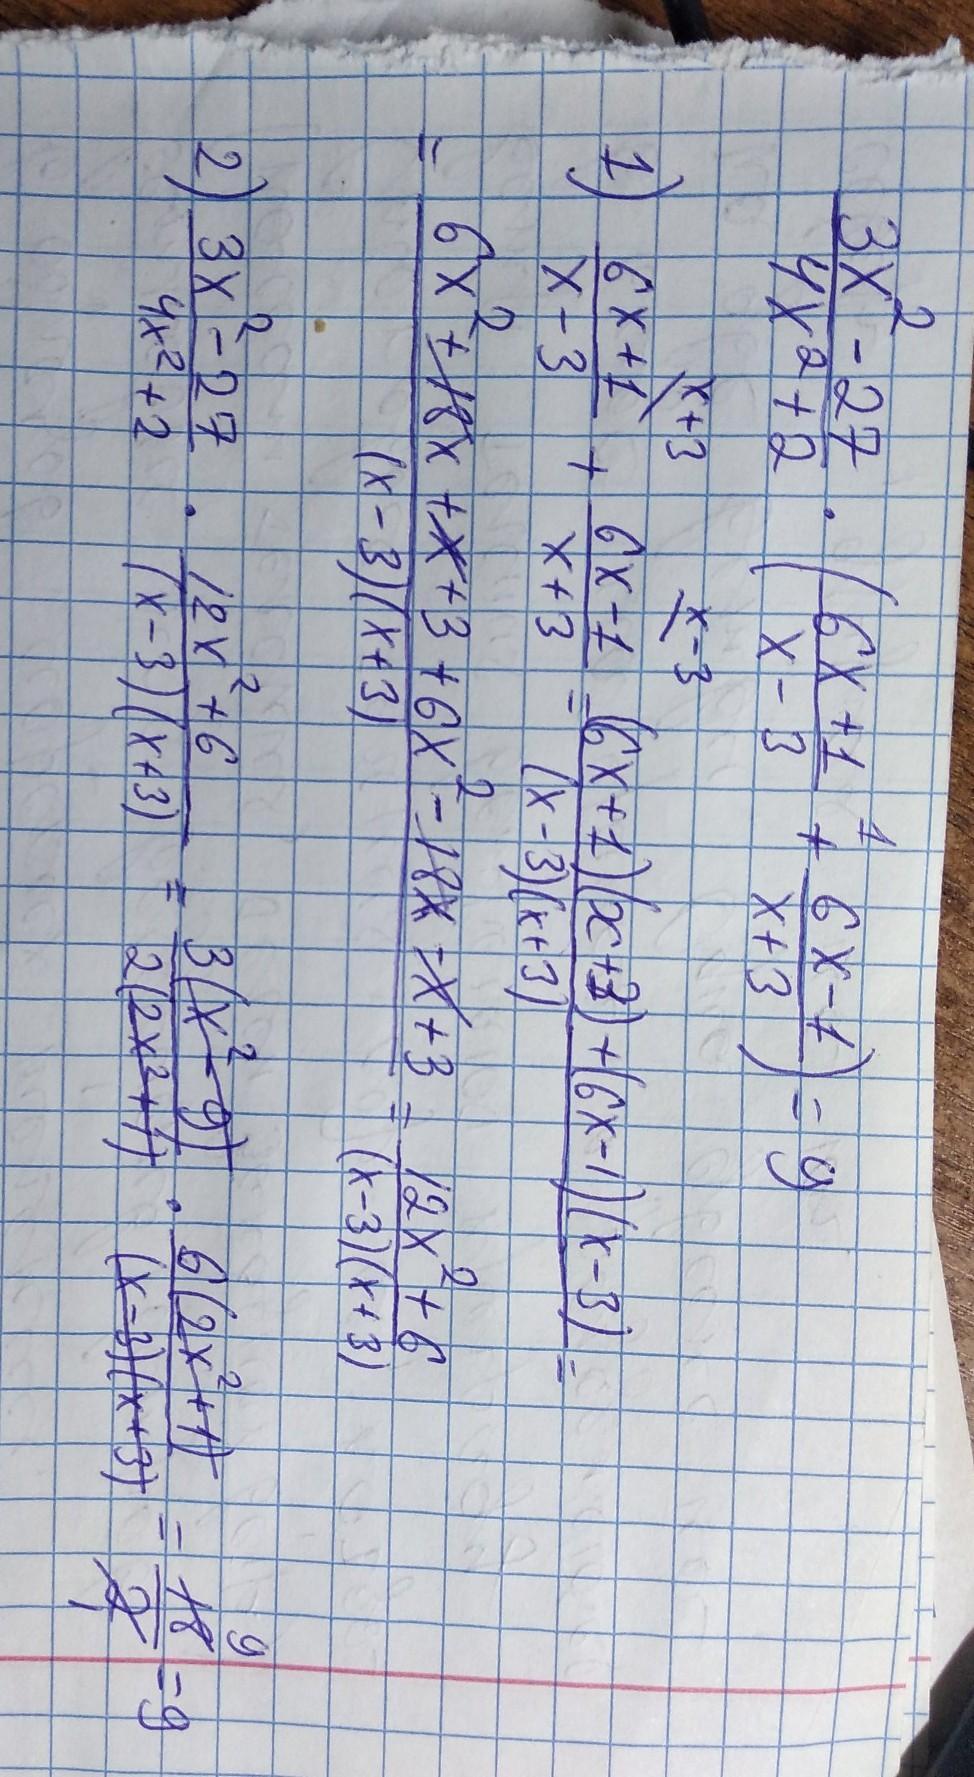 (3x² - 27)/(4x² + 2) · ((6x + 1)/(x - 3) + (6x - 1)/(x + 3)) = 9
1) (6x + 1)/(x - 3) \x+3 + (6x - 1)/(x + 3) \x-3 = ((6x + 1)(x + 3) + (6x - 1)(x - 3))/((x - 3)(x + 3)) =
= (6x² + 18x + x + 3 + 6x² - 18x - x + 3)/((x - 3)(x + 3)) = (12x² + 6)/((x - 3)(x + 3))
2) (3x² - 27)/(4x² + 2) · (12x² + 6)/((x - 3)(x + 3)) = 3(x² - 9)/2(2x² + 1) · 6(2x² + 1)/((x - 3)(x + 3)) = 18 9/2 1 = 9